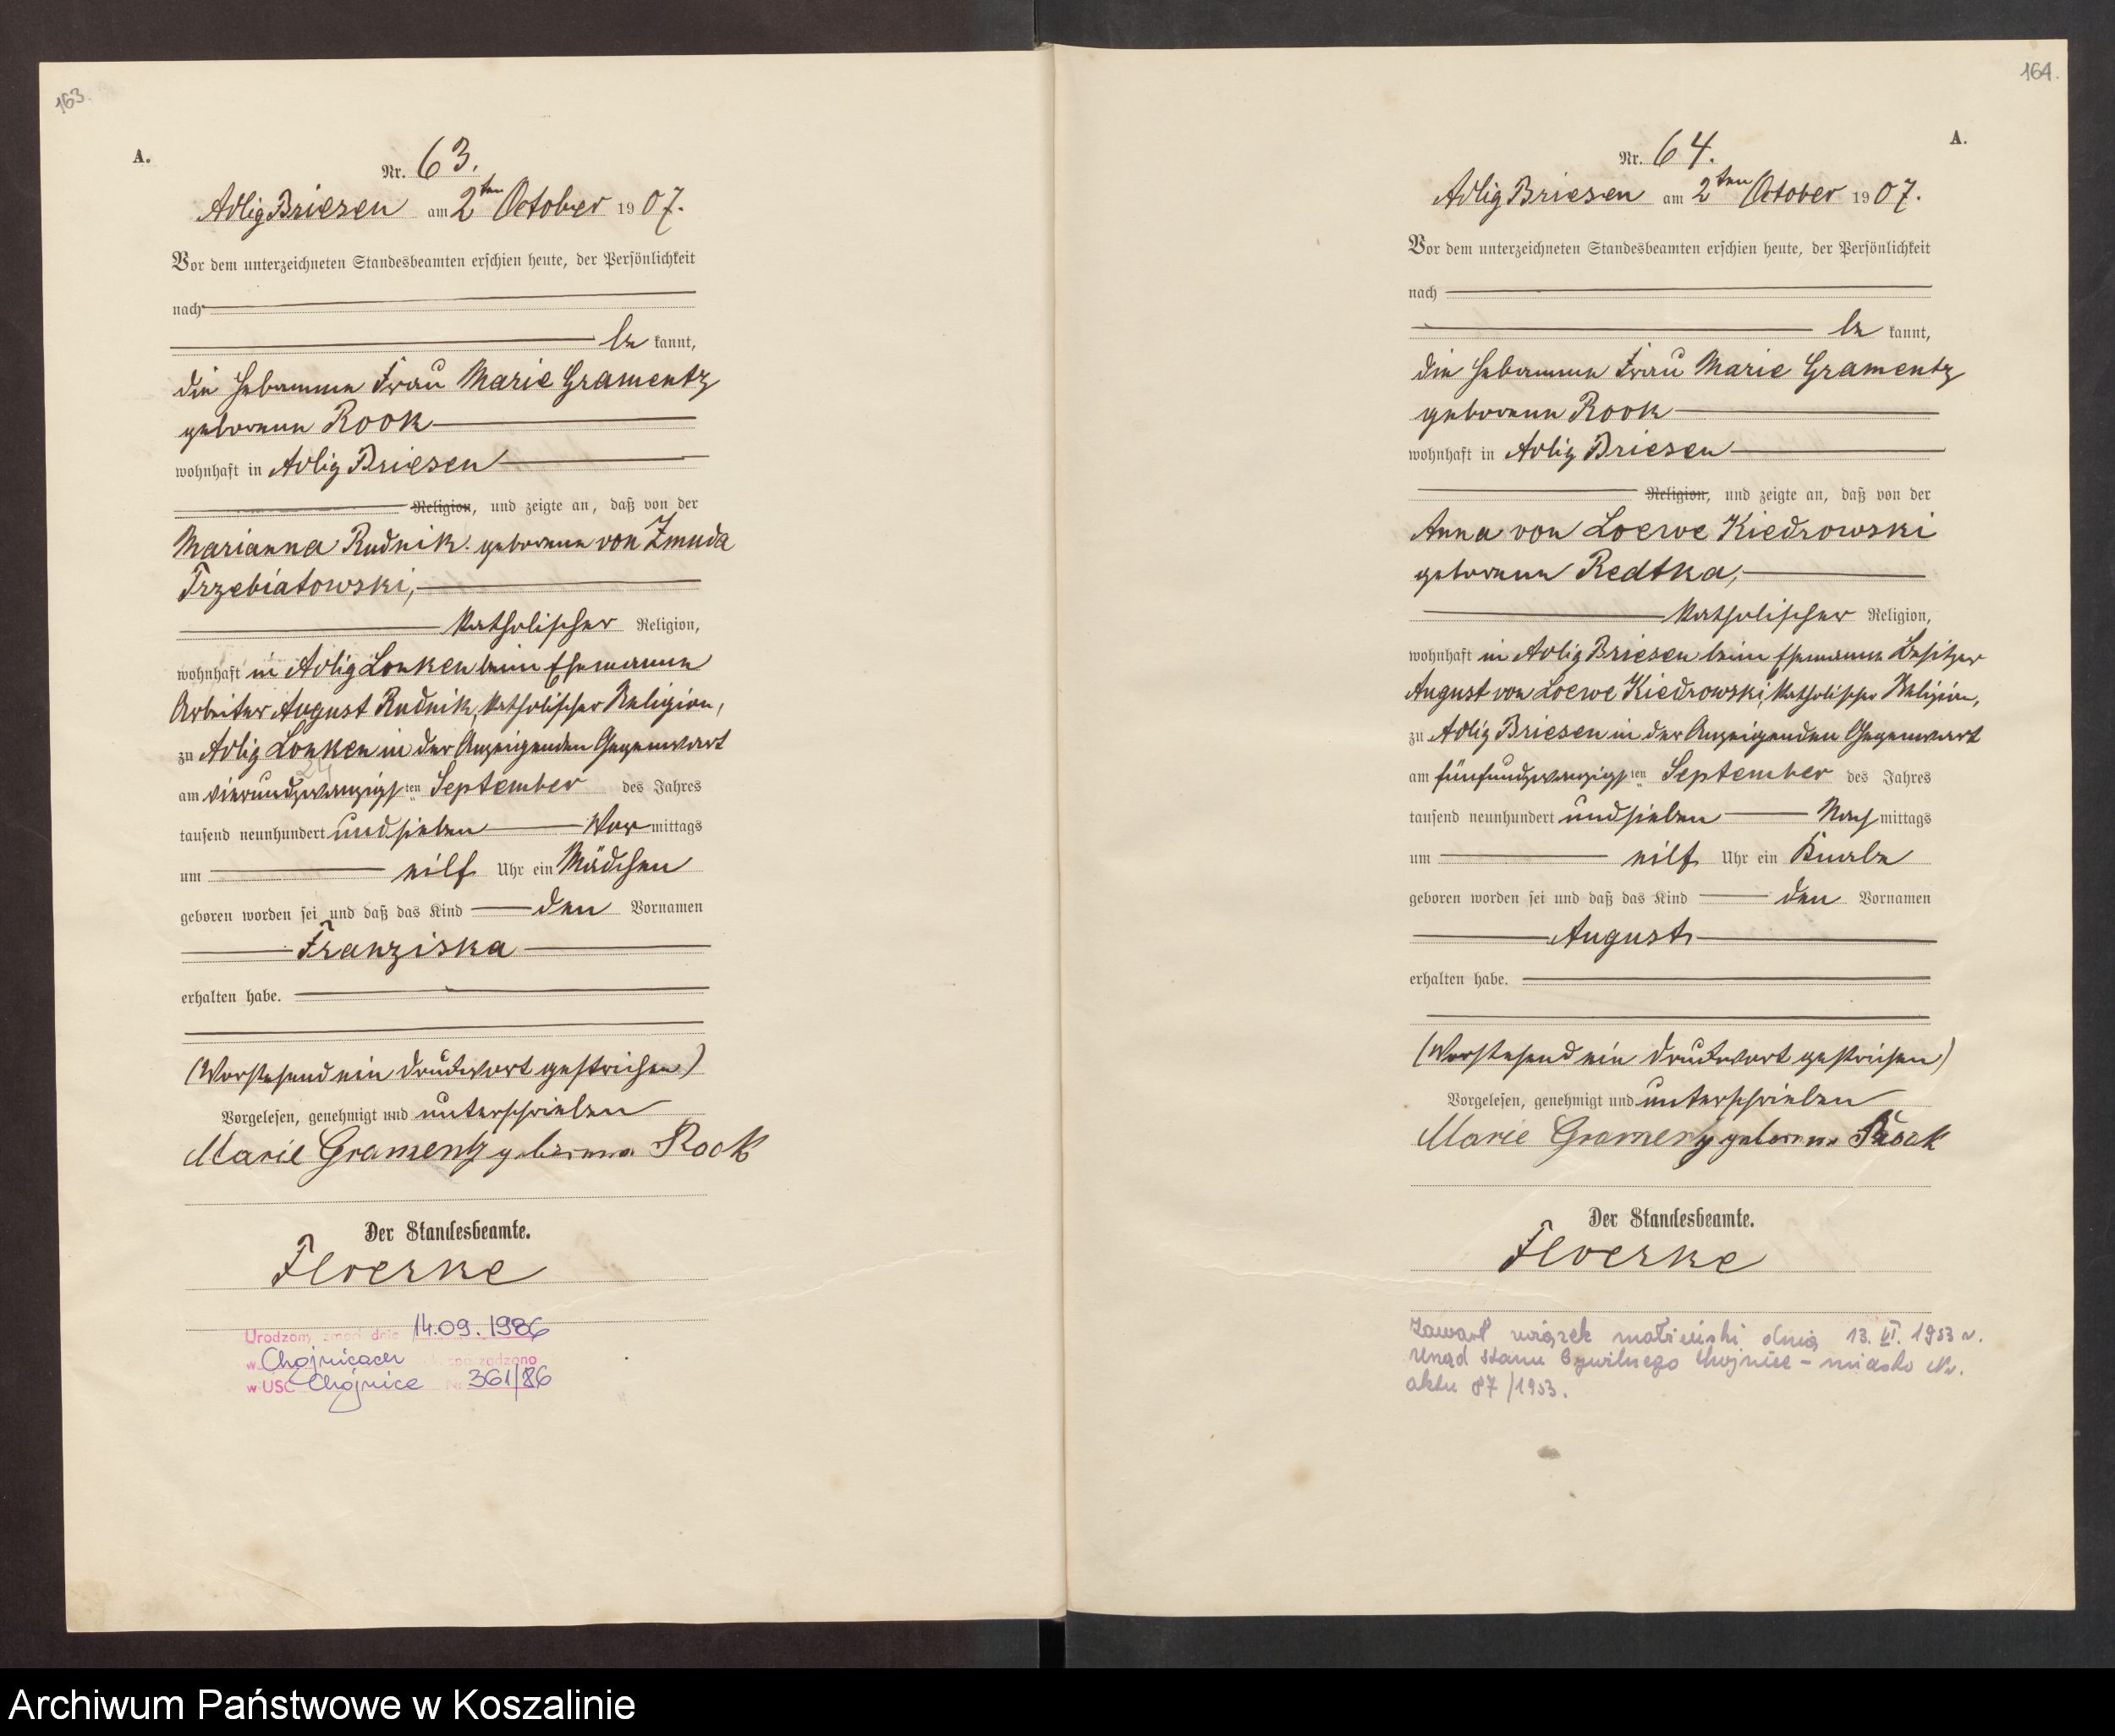 163.
A.
Nr. 63.
Adlig Briesen am 2ten October 1907.
Vor dem unterzeichneten Standesbeamten erschien heute, der Persönlichkeit
nach
be kannt,
die Hebamme Frau Marie Gramentz
geborene Rook
wohnhaft in Adlig Briesen
Religion, und zeigte an, daß von der
Marianna Rudnik geborene von Zmuda
Trzebiatowski,
katholischer Religion,
wohnhaft in Adlig Lonken beim Ehemanne
Arbeiter August Rudnik, katholischer Religion,
zu Adlig Lonken in der Anzeigenden Gegenwart
am vierundzwanzigsten September des Jahres
tausend neunhundert und sieben Vor mittags
um eilf Uhr ein Mädchen
geboren worden sei und daß das Kind den Vornamen
Franziska
erhalten habe.
(Vorstehend ein Druckwort gestrichen)
Vorgelesen, genehmigt und unterschrieben
Marie Gramentz geborene Rook
Der Standesbeamte.
Floerke
Urodzony zmarł dnia 14.09.1986
w Chojnicach sporządzono
w USC Chojnice Nr 361/86
164.
A.
Nr. 64.
Adlig Briesen am 2ten October 1907.
Vor dem unterzeichneten Standesbeamten erschien heute, der Persönlichkeit
nach
be kannt,
die Hebamme Frau Marie Gramentz
geborene Rook
wohnhaft in Adlig Briesen
Religion, und zeigte an, daß von der
Anna von Loewe Kiedrowski
geborene Redtka,
katholischer Religion,
wohnhaft in Adlig Briesen beim Ehemanne Besitzer
August von Loewe Kiedrowski, katholischer Religion,
zu Adlig Briesen in der Anzeigenden Gegenwart
am fünfundzwanzigsten September des Jahres
tausend neunhundert und sieben Nach mittags
um eilf Uhr ein Knabe
geboren worden sei und daß das Kind den Vornamen
August
erhalten habe.
(Vorstehend ein Druckwort gestrichen)
Vorgelesen, genehmigt und unterschrieben
Marie Gramentz geborene Roock
Der Standesbeamte.
Floerke
Zawarł związek małżeński dnia 13. VI. 1953 r.
Urząd Stanu Cywilnego Chojnice - miasto Nr.
aktu 87/1953.
Archiwum Państwowe w Koszalinie